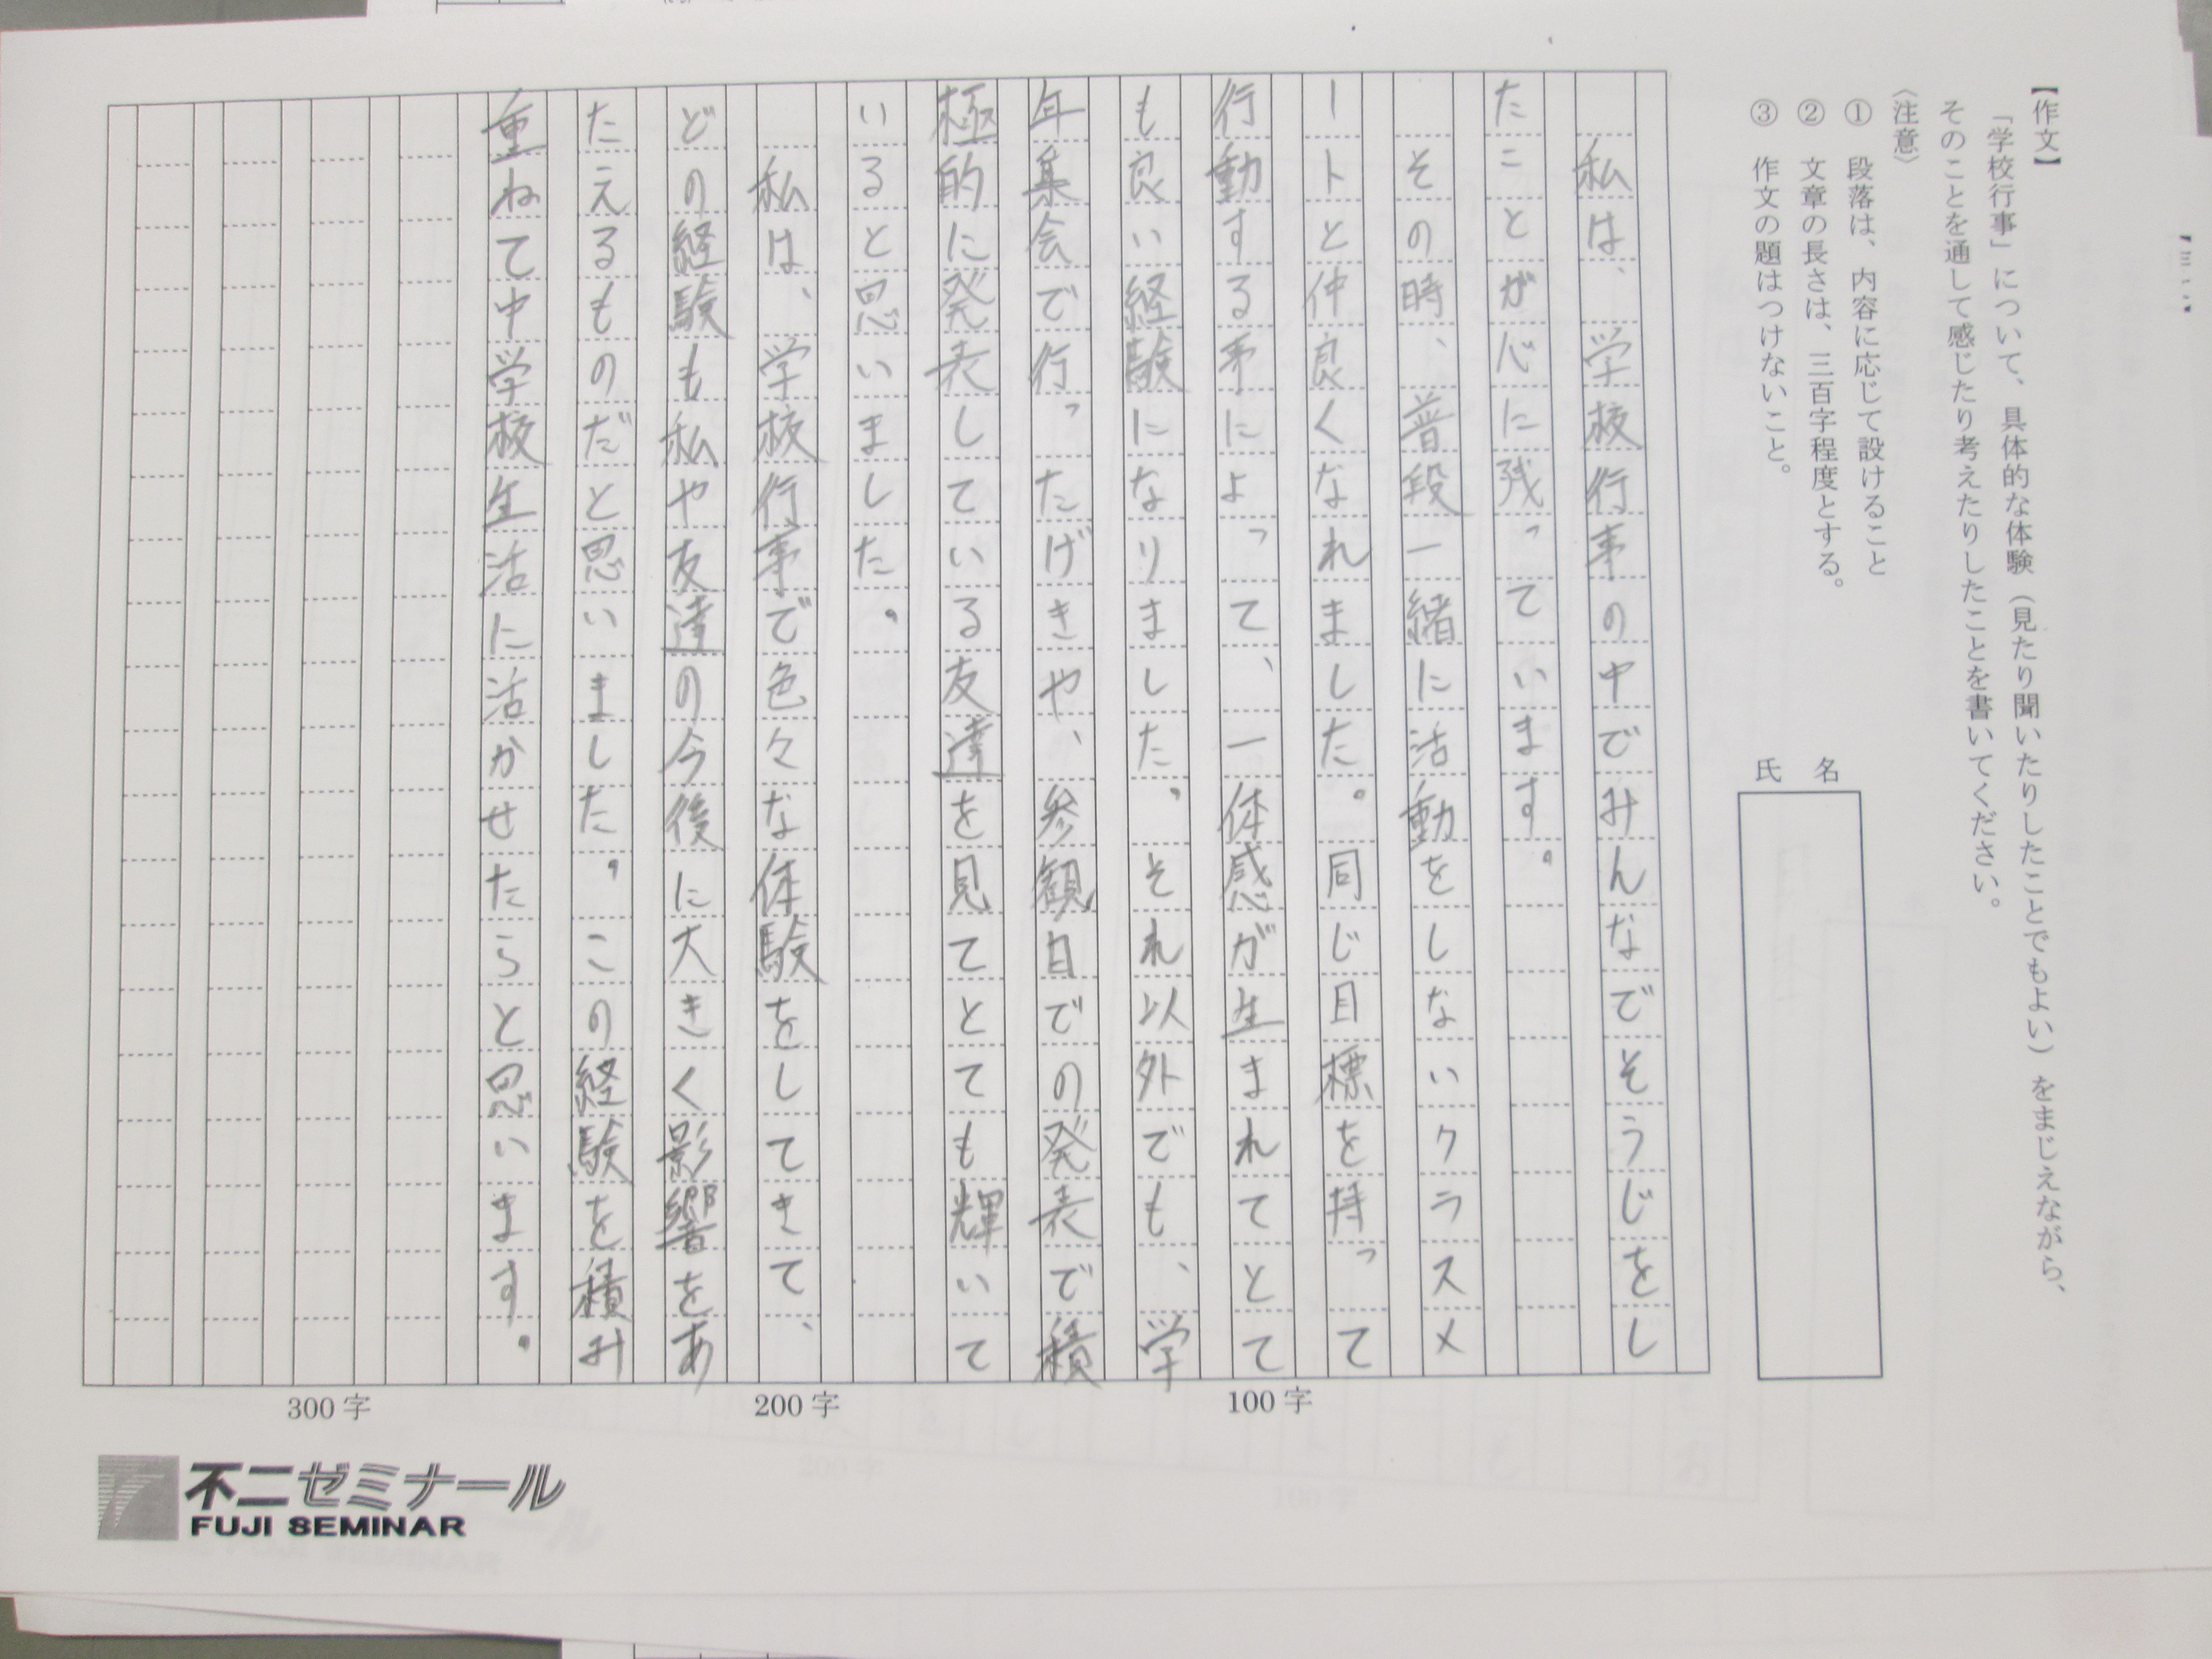 【作文】
「学校行事」について、具体的な体験（見たり聞いたりしたことでもよい）をまじえながら、
そのことを通して感じたり考えたりしたことを書いてください。
〈注意〉
① 段落は、内容に応じて設けること
② 文章の長さは、三百字程度とする。
③ 作文の題はつけないこと。
氏名
私は、学校行事の中でみんなでそうじをし
たことが心に残っています。
その時、普段一緒に活動をしないクラスメ
ートと仲良くなれました。同じ目標を持って
行動する事によって、一体感が生まれてとて
も良い経験になりました。それ以外でも、学
年集会で行ったげきや、参観日での発表で積
極的に発表している友達を見てとても輝いて
いると思いました。
私は、学校行事で色々な体験をしてきて、
どの経験も私や友達の今後に大きく影響をあ
たえるものだと思いました。この経験を積み
重ねて中学校生活に活かせたらと思います。
100字
200字
300字
不二ゼミナール
FUJI SEMINAR